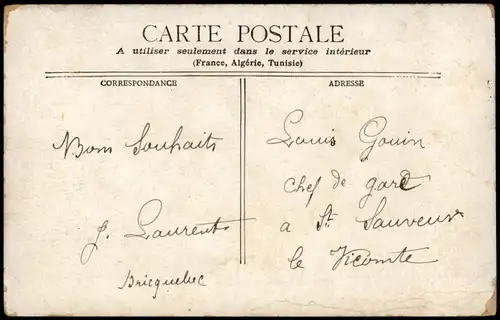 CARTE POSTALE
A utiliser seulement dans le service intérieur
(France, Algérie, Tunisie)
CORRESPONDANCE
Bons Souhaits
J. Laurent
Bricquebec
ADRESSE
Louis Gouin
chef de gare
a St Sauveur
le Vicomte